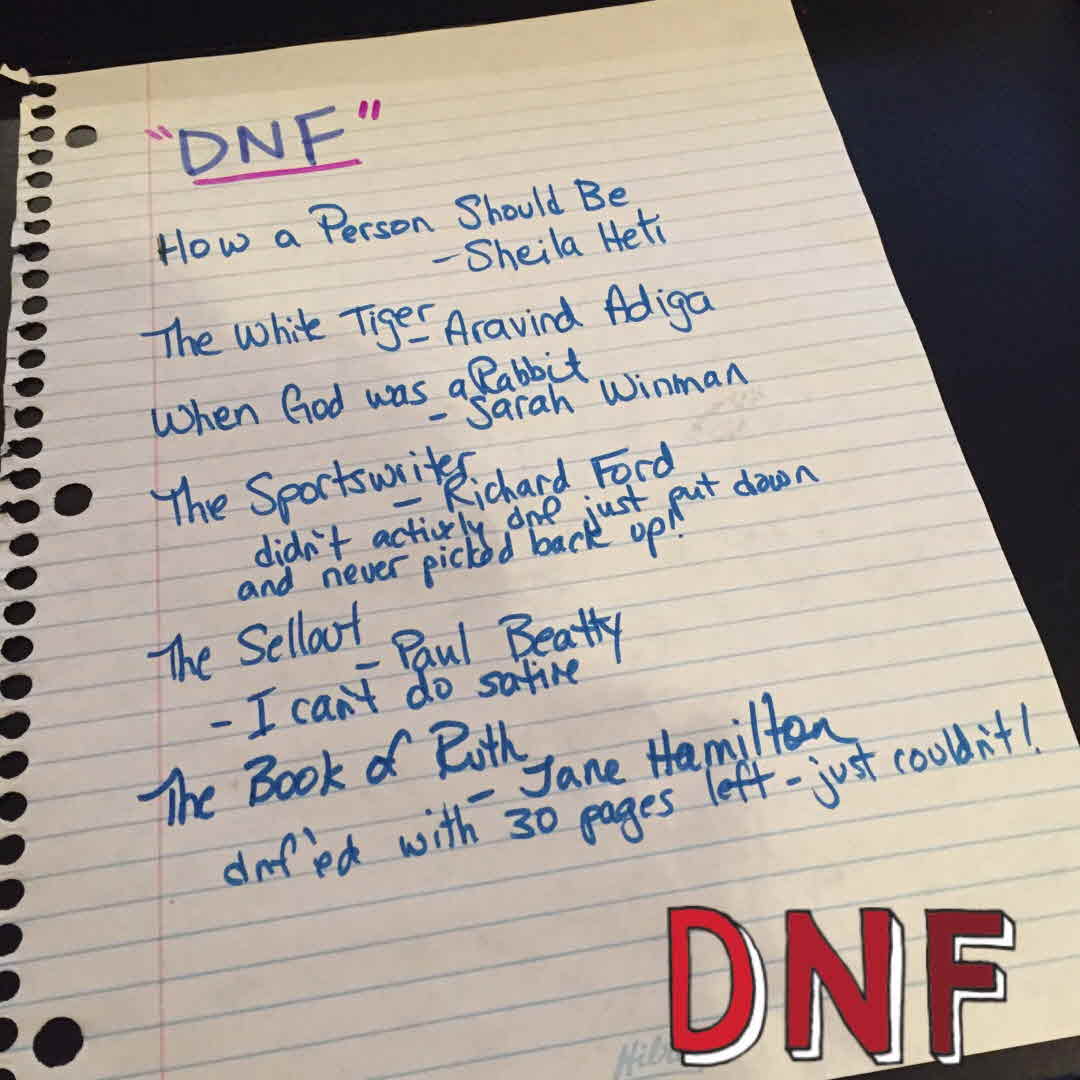 "DNF"
How a Person Should Be
- Sheila Heti
The White Tiger - Aravind Adiga
When God was a Rabbit
- Sarah Winman
The Sportswriter
- Richard Ford
didn't actively dnf just put down
and never picked back up!
The Sellout - Paul Beatty
- I can't do satire
The Book of Ruth
- Jane Hamilton
dnf'ed with 30 pages left - just couldn't!
DNF